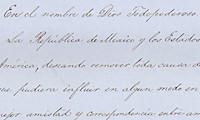 En el nombre de Dios Todopoderoso.
La República de Mexico y los Estados
América, deseando remover toda causa d
ue pudiera influir en algun modo en
ejor amistad y correspondencia entre am